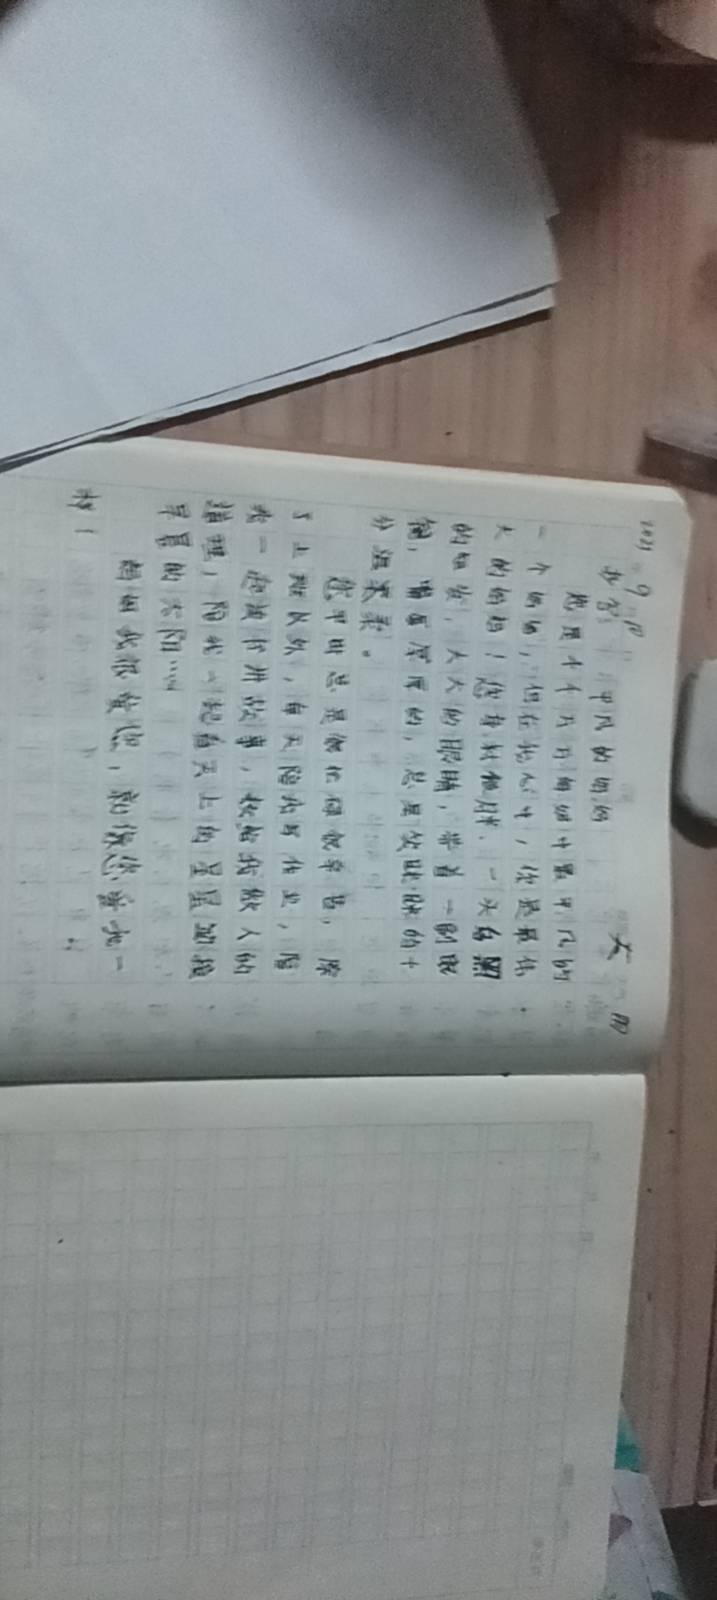 2021 9
平凡的妈妈
您是千千万万妈妈中最平凡的
一个妈妈，但在我心中，你是最伟
大的妈妈！您身材很胖，一头乌黑
的短发，大大的眼睛，带着一副眼
镜，嘴唇厚厚的，总是笑眯眯的十
分温柔。
您平日总是很忙很辛苦，除
了上班以外，每天陪我写作业，陪
我一起读书讲故事，教给我做人的
道理，陪我一起看天上的星星
早晨的太阳……
妈妈我很爱您，就像您爱我一
样！